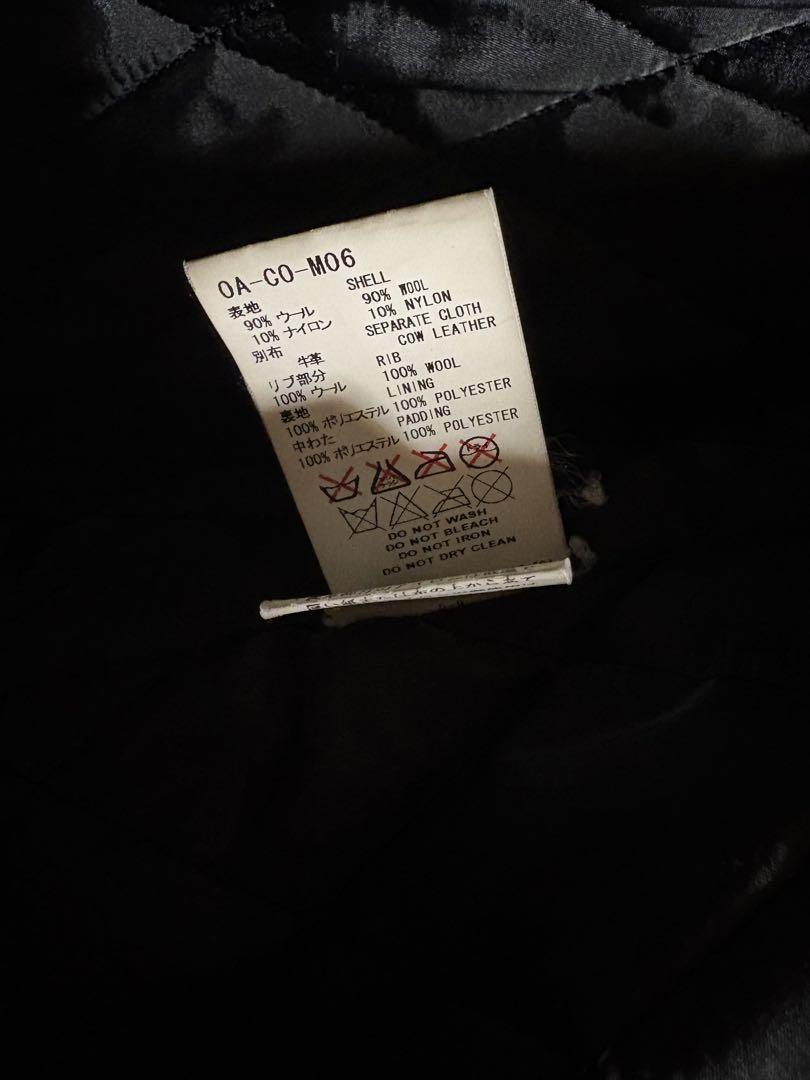 OA-CO-M06
表地 SHELL
90% ウール 90% WOOL
10% ナイロン 10% NYLON
別布 SEPARATE CLOTH
牛革 COW LEATHER
リブ部分 RIB
100% ウール 100% WOOL
裏地 LINING
100% ポリエステル 100% POLYESTER
中わた PADDING
100% ポリエステル 100% POLYESTER
DO NOT WASH
DO NOT BLEACH
DO NOT IRON
DO NOT DRY CLEAN